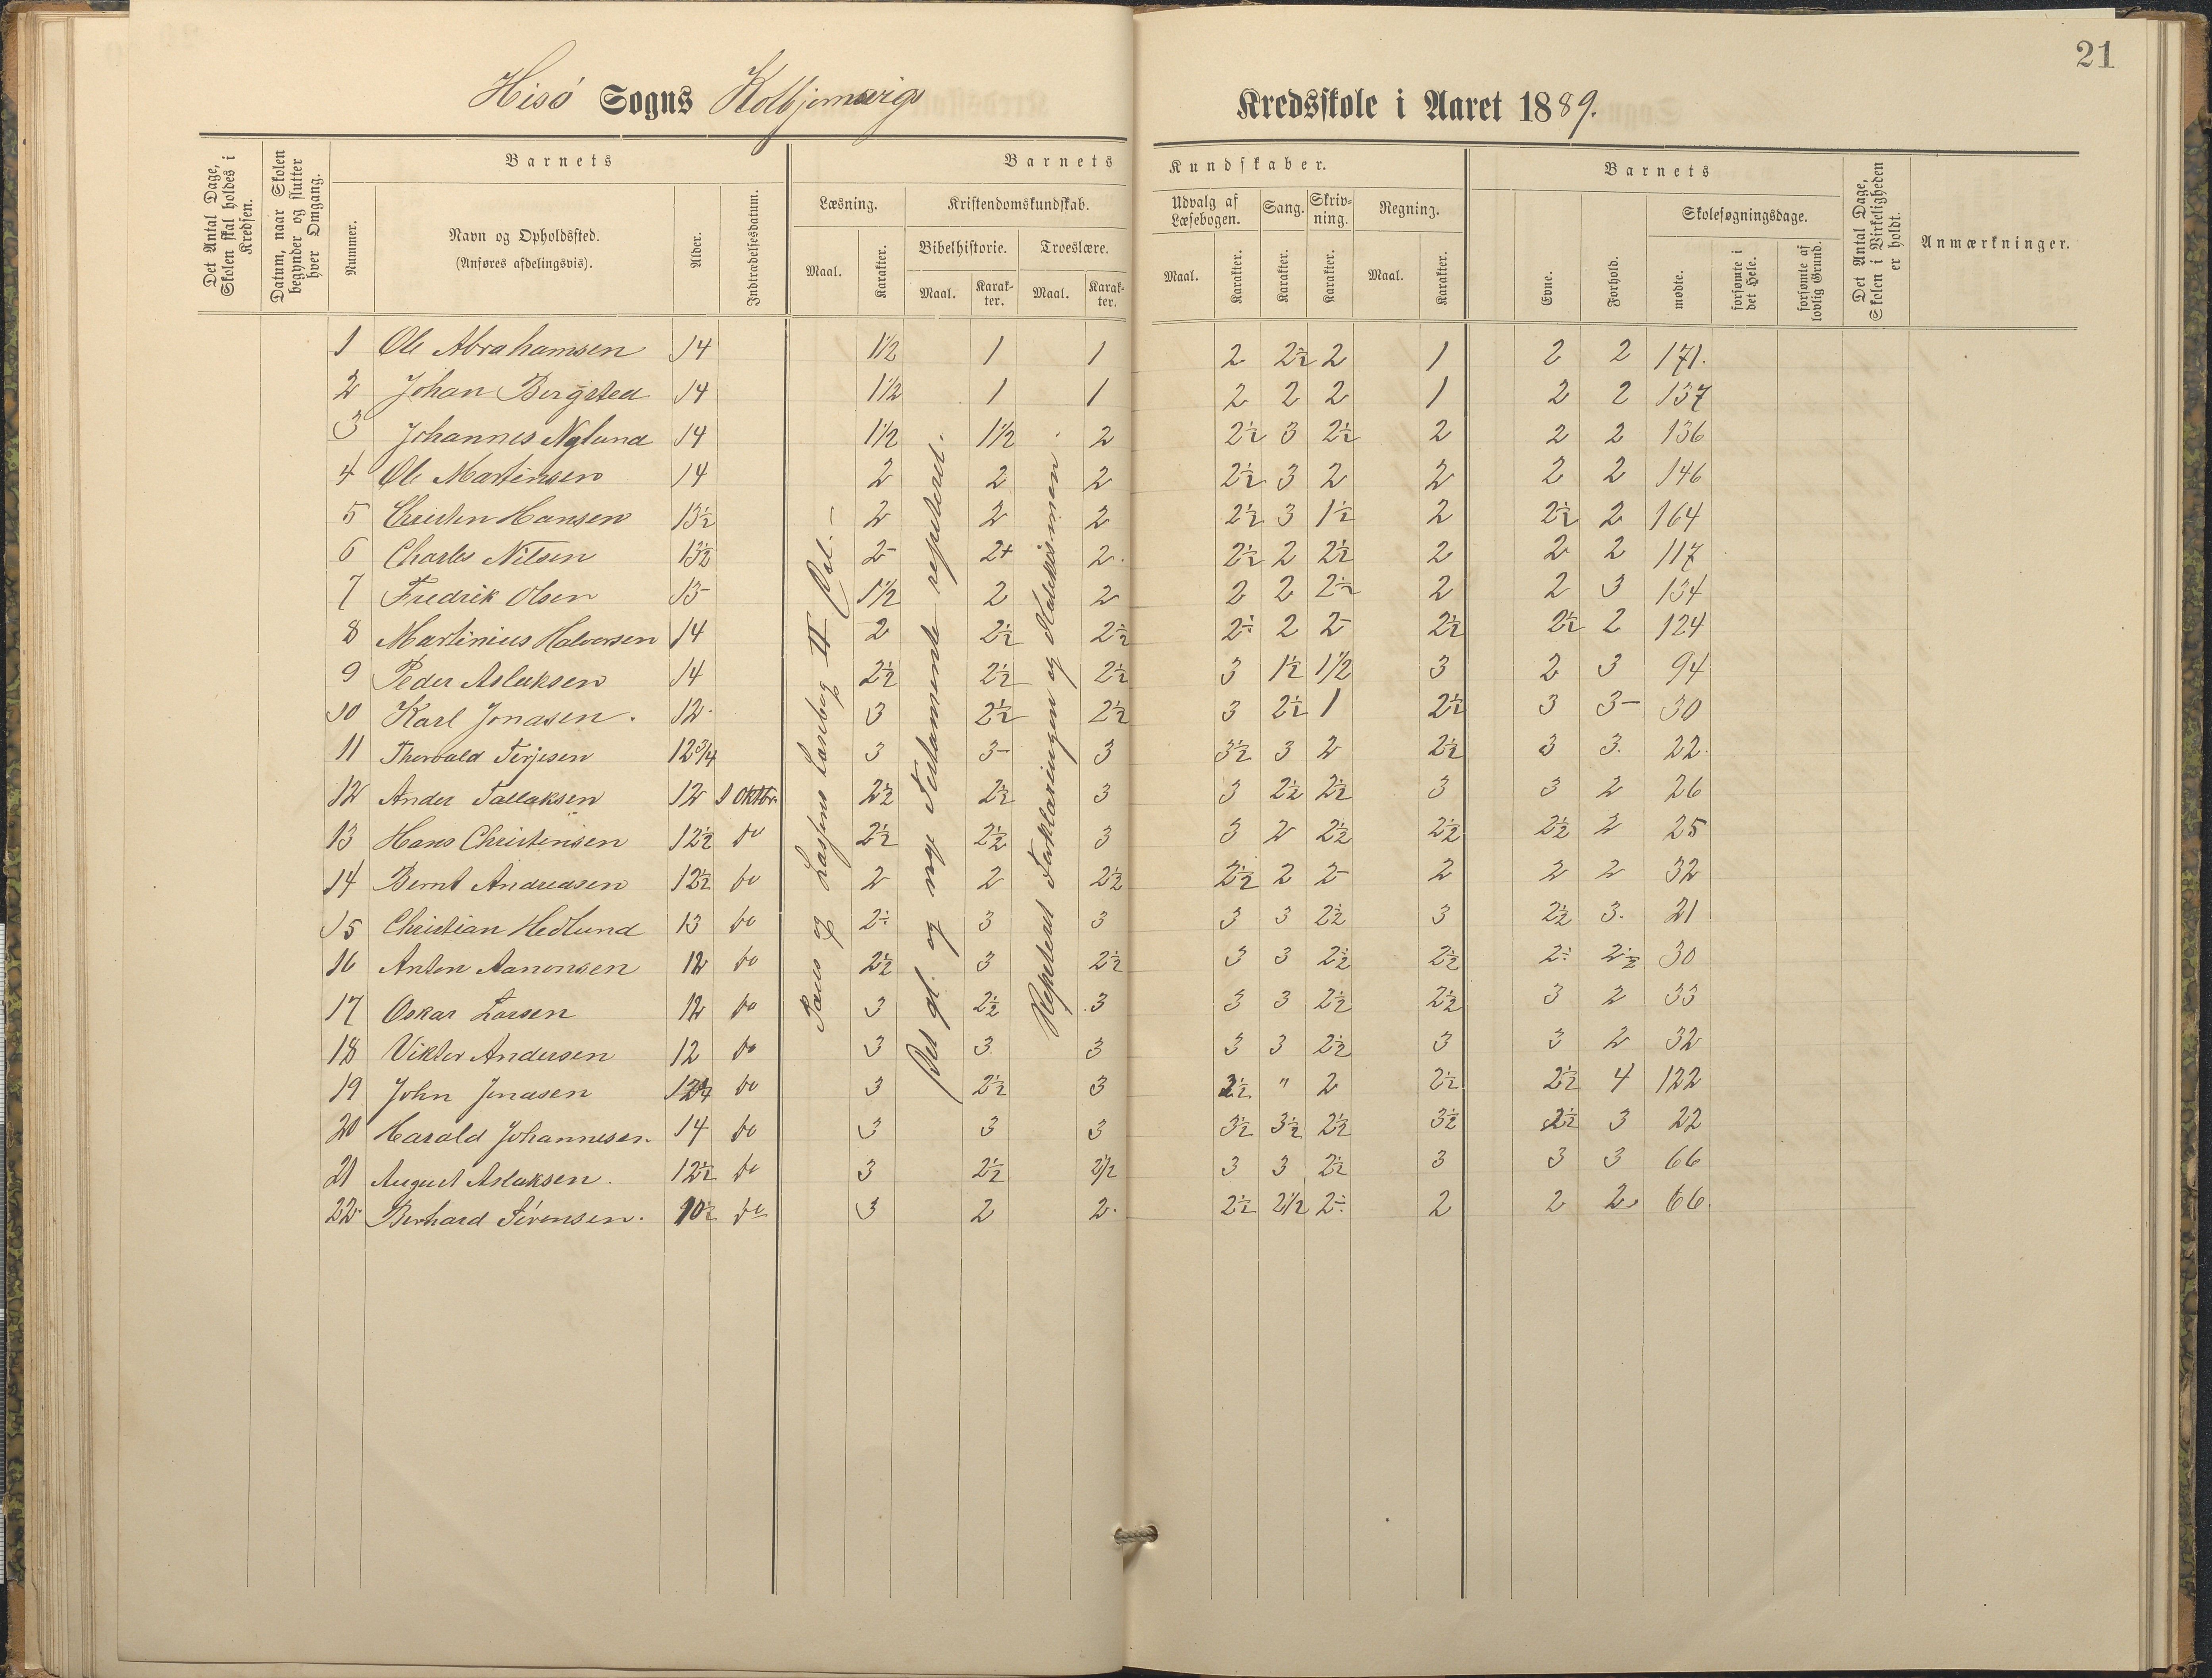 21
Hisö Sogns Kolbjørnsvigs Kredsskole i Aaret 1889.
Det Antal Dage, Skolen skal holdes i Kredsen.
Datum, naar Skolen begynder og slutter hver Omgang.
Barnets
Nummer.
Navn og Opholdssted.
(Anføres afdelingsvis).
Alder.
Indtrædelsesdatum.
Barnets Kundskaber.
Læsning.
Maal. Karakter.
Kristendomskundskab.
Bibelhistorie. Troeslære.
Maal. Karakter. Maal. Karakter.
Udvalg af Læsebogen.
Maal. Karakter.
Sang.
Karakter.
Skrivning.
Karakter.
Regning.
Maal. Karakter.
Barnets
Evne. Forhold.
Skolesøgningsdage.
mødte. forsømte i det Hele. forsømte af lovlig Grund.
Det Antal Dage, Skolen i Virkeligheden er holdt.
Anmærkninger.
1 Ole Abrahamsen 14 1½ 1 1 2 2½ 2 1 2 2 171.
2 Johan Bergsted 14 1½ 1 1 2 2 2 1 2 2 137
3 Johannes Nylund 14 1½ 1½ 2 2½ 3 2½ 2 2 2 136
4 Ole Martinsen 14 2 2 2 2½ 3 2 2 2 2 146
5 Christen Hansen 13½ 2 2 2 2½ 3 1½ 2 2½ 2 164
6 Charles Nilsen 13½ 2- 2+ 2. 2½ 2 2½ 2 2 2 117
7 Fredrik Olsen 13- 1½ 2 2 2 2 2½ 2 2 3 134
8 Martinius Halvorsen 14 2 2½ 2½ 2÷ 2 2- 2½ 2½ 2 124
9 Peder Aslaksen 14 2½ 2½ 2½ 3 1½ 1½ 3 2 3 94
10 Karl Jonasen. 12. 3 2½ 2½ 3 2½ 1 2½ 3 3- 30
11 Thorvald Terjesen 12¾ 3 3- 3 3½ 3 2 2½ 3 3. 22.
12 Ander Tallaksen 12 1 Oktbr. 2½ 2½ 3 3 2½ 2½ 3 3 2 26
13 Hans Christensen 12½ do 2½ 2½ 3 3 2 2½ 2½ 2½ 2 25
14 Bernt Andreasen 12½ do 2 2 2½ 2½ 2 2- 2 2 2 32
15 Christian Hedlund 13 do 2÷ 3 3 3 3 2½ 3 2½ 3. 21
16 Anton Aanonsen 12 do 2½ 3 2½ 3 3 2½ 2½ 2÷ 2½ 30
17 Oskar Larsen 12 do 3 2½ 3 3 3 2½ 2½ 3 2 33
18 Viktor Andersen 12 do 3 3. 3 3 3 2½ 3 3 2 32
19 John Jonasen do 3 2½ 3 2½ " 2 2½ 2½ 4 122
20 Harald Johannesen. 14 do 3 3 3 3½ 3½ 2½ 3½ 2½ 3 22
21 August Aslaksen. 12½ do 3 2½ 2½ 3 3 2½ 3 3 3 66
22. Berhard Sörensen. 10½ do 3 2 2. 2½ 2½ 2÷ 2 2 2 66.
Paus og Lassens Læsebog II Del.-
Det gl. og nye Testamente repeteret.
Repeteret Forklaringen og Katekismen.